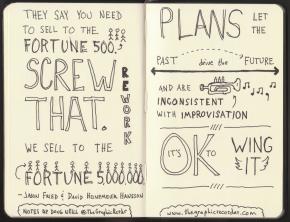 THEY SAY YOU NEED
TO SELL TO THE
FORTUNE 500.
SCREW
THAT.
REWORK
WE SELL TO THE
FORTUNE 5,000,000
– JASON FRIED & DAVID HEINEMEIER HANSSON
NOTES BY DOUG NEILL @TheGraphicRecorder
PLANS LET
THE
PAST drive the FUTURE
AND ARE
INCONSISTENT
WITH IMPROVISATION
IT'S OK TO WING
IT
www.thegraphicrecorder.com